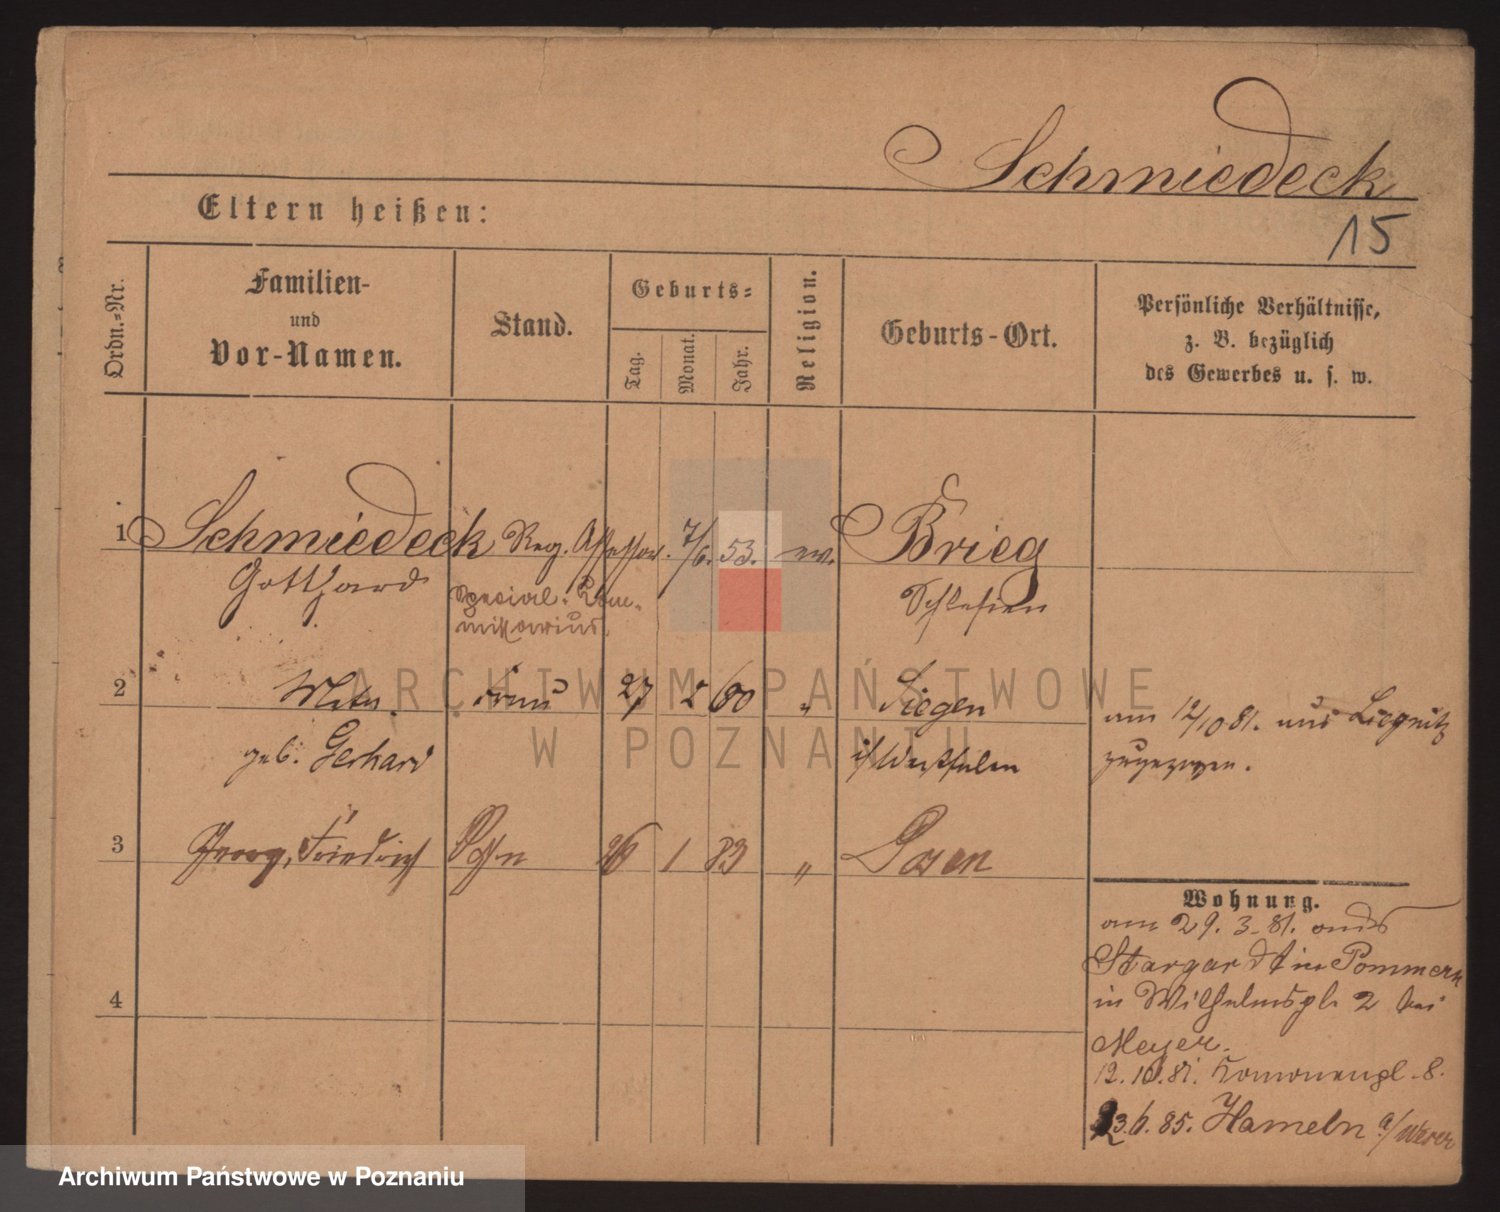 Schmiedeck
15
Eltern heißen:
Ordn.-Nr.
Familien-
und
Vor-Namen.
Stand.
Geburts-
Tag.
Monat.
Jahr.
Religion.
Geburts-Ort.
Persönliche Verhältnisse,
z. B. bezüglich
des Gewerbes u. s. w.
1 Schmiedeck Reg. Assessor. 7/6. 53. ev. Brieg
Gotthard Special-Com- Schlesien
missarius.
2 Frau 27 60 " Siegen
geb. Gerhard i/Westfalen
am 12/10 81. aus Liegnitz
zugezogen.
3 Georg, Friedrich Sohn 26 1 83 " Posen
4
Wohnung.
am 29. 3. 81. aus
Stargardt in Pommern
in Wilhelmspl. 2 bei
Meyer.
12. 10. 81. 8.
23. 6. 85. Hameln a/Weser
ARCHIWUM PAŃSTWOWE
W POZNANIU
Archiwum Państwowe w Poznaniu